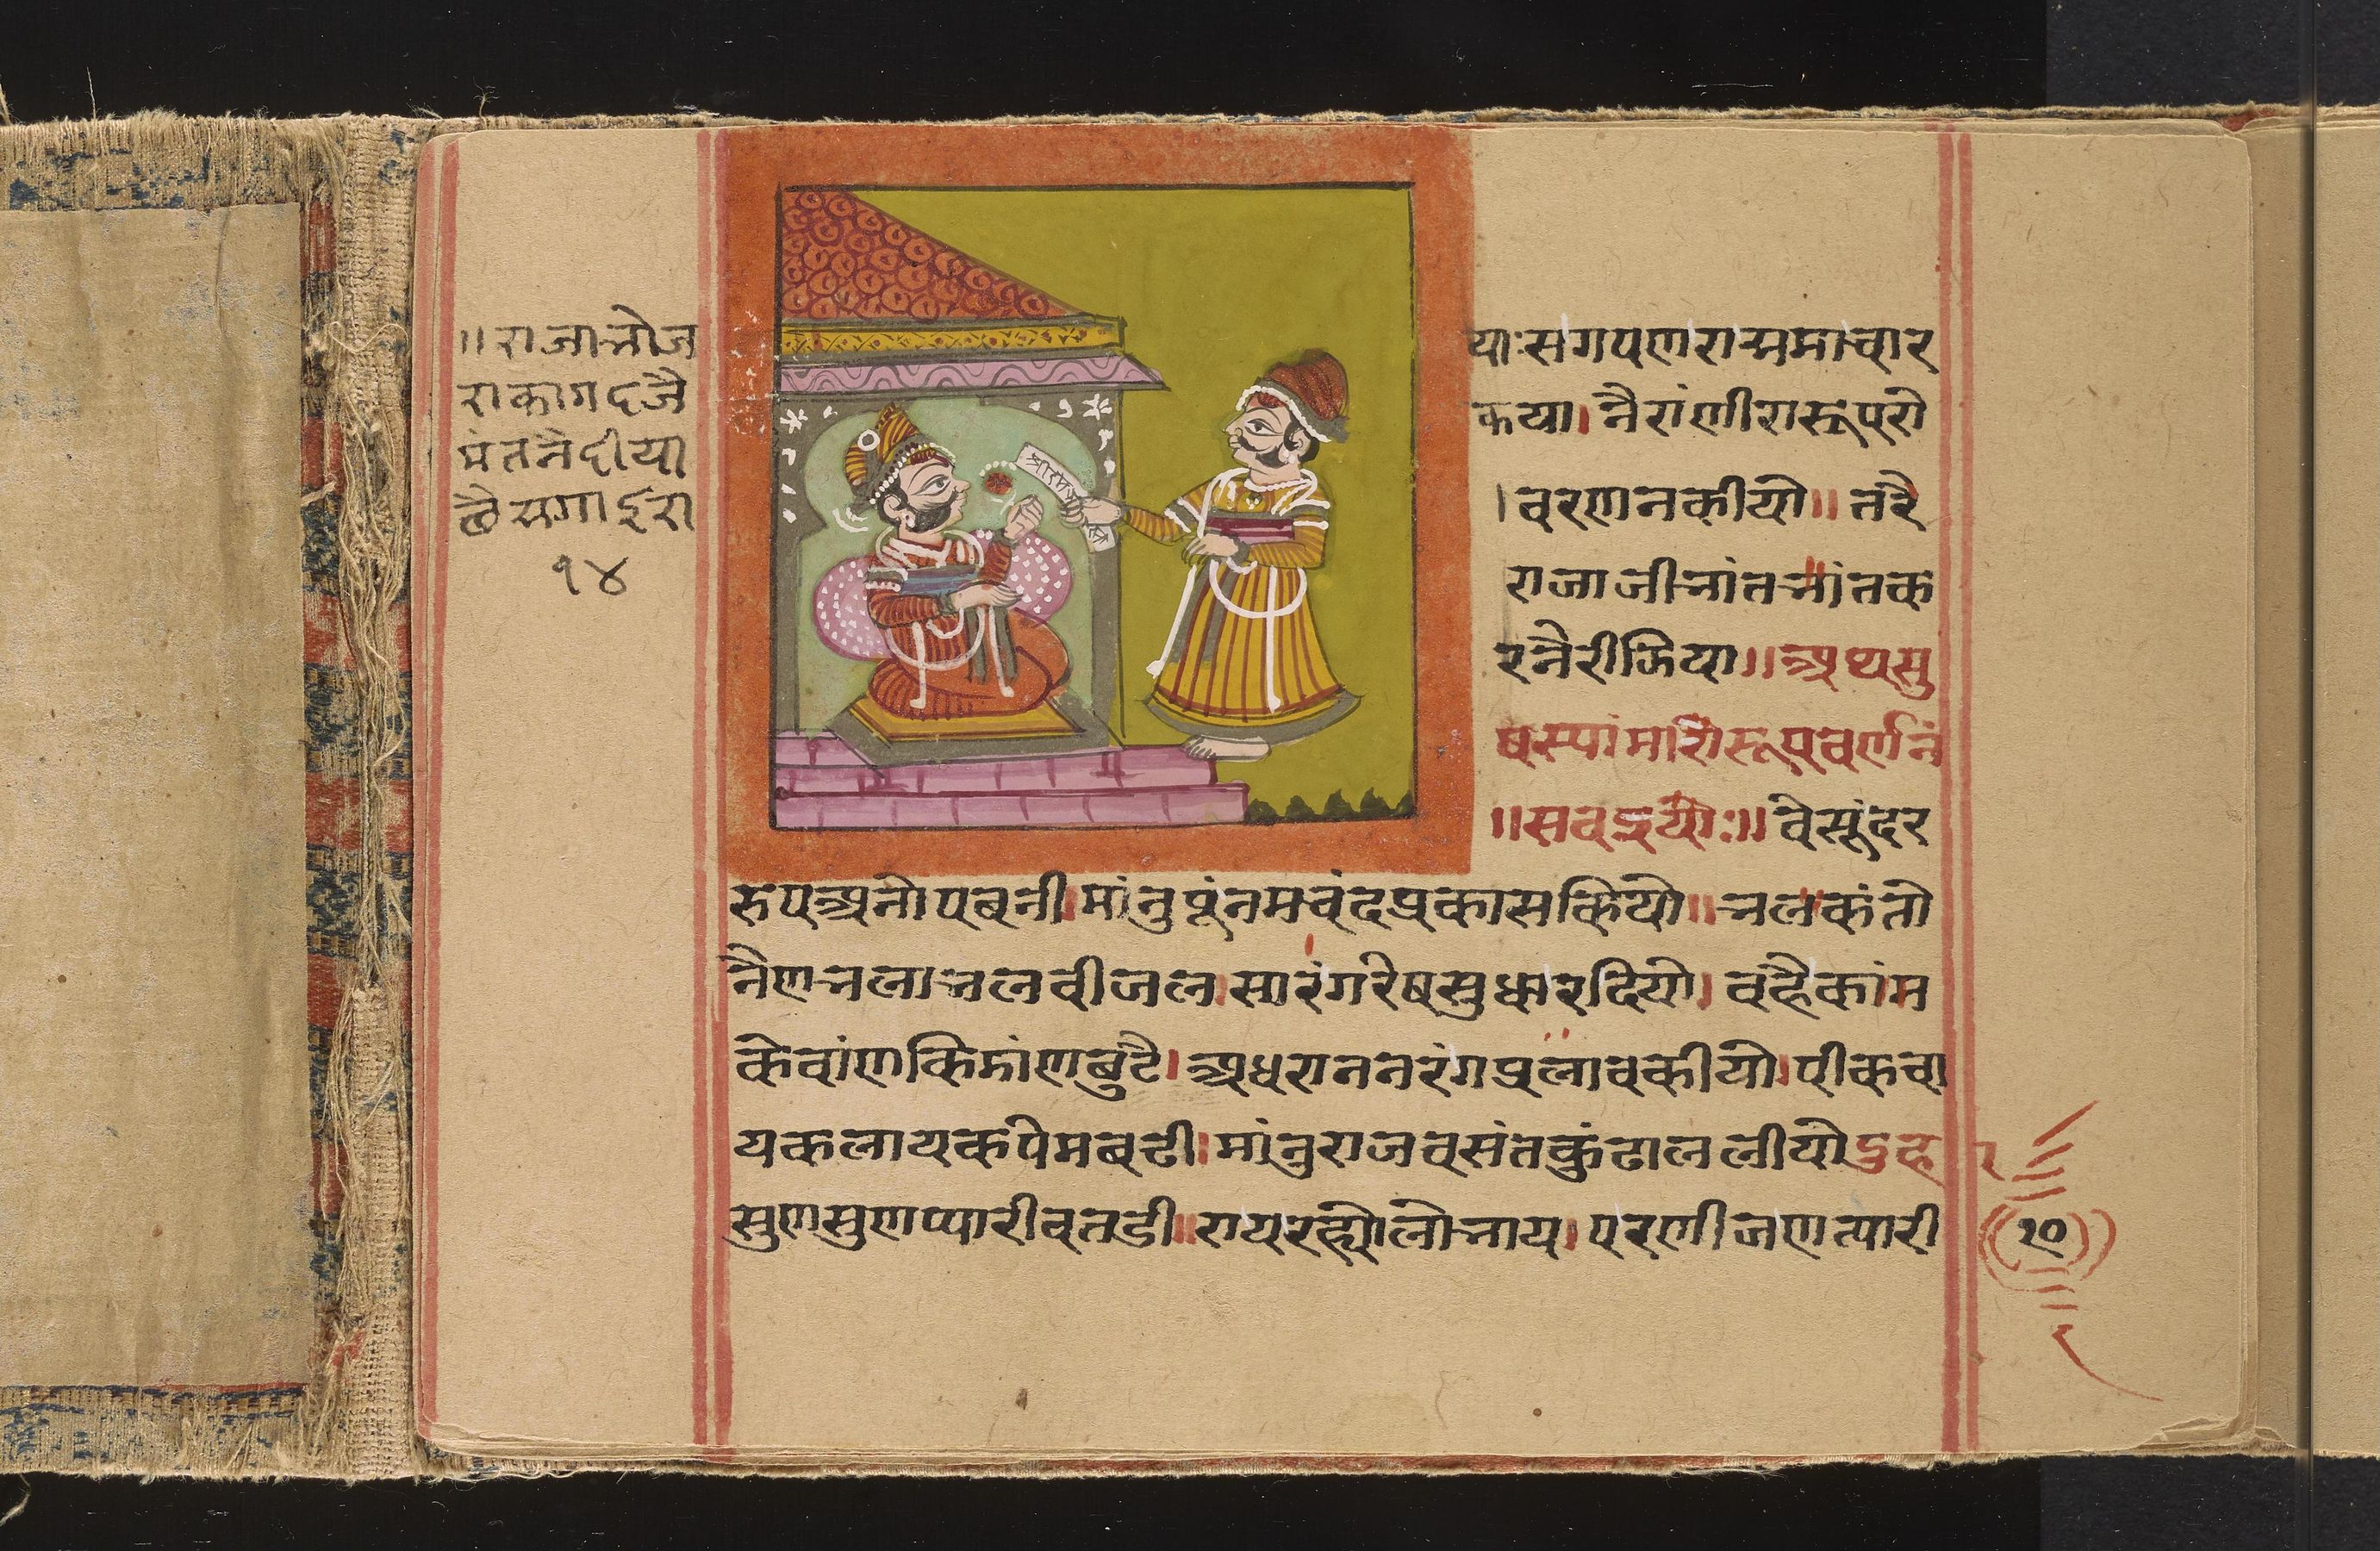 ॥राजाभोज
राकागदजै
मंतनैदीया
छैसगाइरा
१४
याःसगपणरासमाचार
कया।नैरांणीरारूपरो
।वरणनकीयो॥तरै
राजाजीभांतभांतक
रनैरीझिया॥अथसु
षस्यांमारोरूपवर्णनं
॥सवईयोः॥वैसूंदर
रुपअनोपबनी।मांनुपूंनमचंदप्रकासकियो॥भलकंतो
नैणभलाभलवीजल।सारंगरेषसुधारदियो।वहैकांम
केबांणकिमांणबुटै।अधराननरंगप्रलावकीयो।पीकवा
यकलायकपेमबटी।मांनुराजवसंतकुंढाललीयोदुहा
सुणसुणप्यारीवतडी॥रायरह्योलोभाय।परणीजणत्यारी
१०